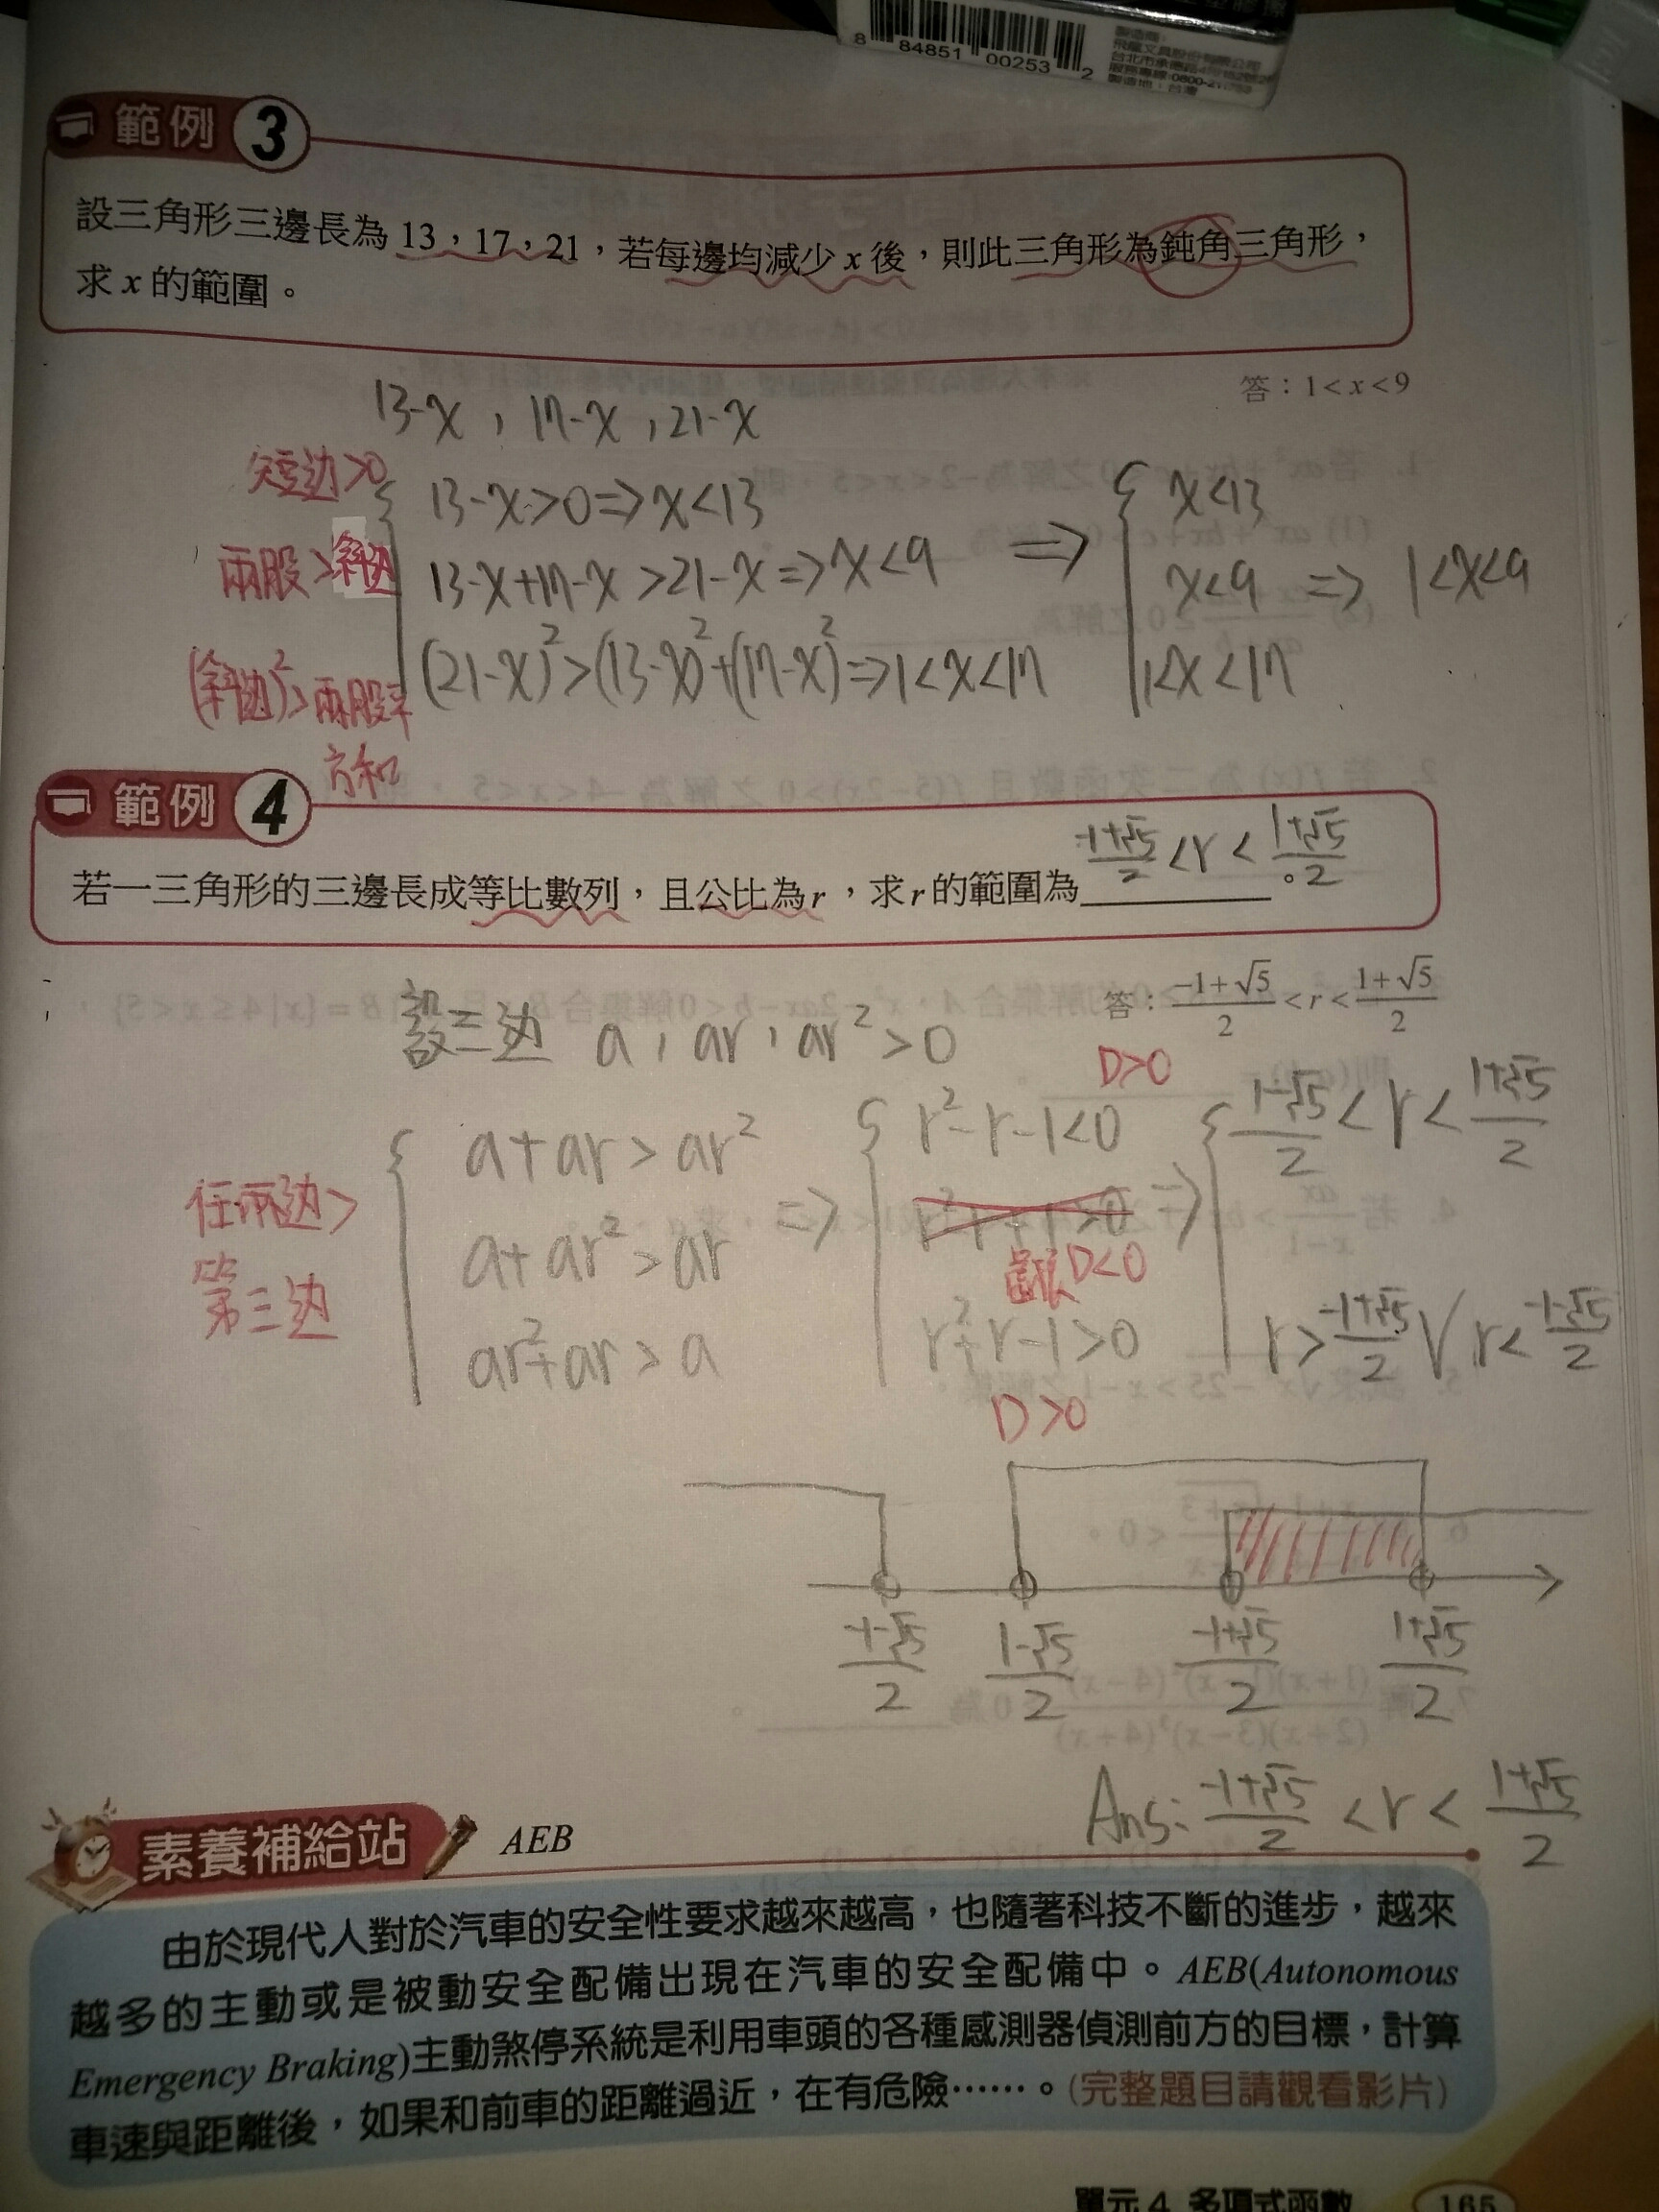 8 84851 00253 2
製造商：
飛龍文具股份有限公司
製造地：台灣
範例 3
設三角形三邊長為 13，17，21，若每邊均減少 x 後，則此三角形為鈍角三角形，
求 x 的範圍。
答：1<x<9
13-x，17-x，21-x
短边>0
13-x>0⇒x<13
兩股>斜边
13-x+17-x>21-x⇒x<9
(斜边)²>兩股平方和
(21-x)²>(13-x)²+(17-x)²⇒1<x<17
⇒
x<13
x<9 ⇒ 1<x<9
1<x<17
範例 4
若一三角形的三邊長成等比數列，且公比為r，求r的範圍為 (-1+√5)/2 <r< (1+√5)/2 。
答：(-1+√5)/2 <r< (1+√5)/2
設三边 a，ar，ar²>0
任兩边>
第三边
a+ar>ar²
a+ar²>ar
ar²+ar>a
⇒
D>0
r²-r-1<0
r²-r+1>0
D<0
r²+r-1>0
D>0
⇒
(1-√5)/2 <r< (1+√5)/2
r> (-1+√5)/2 ∨ r< (-1-√5)/2
(-1-√5)/2 (1-√5)/2 (-1+√5)/2 (1+√5)/2
Ans: (-1+√5)/2 <r< (1+√5)/2
素養補給站 AEB
由於現代人對於汽車的安全性要求越來越高，也隨著科技不斷的進步，越來
越多的主動或是被動安全配備出現在汽車的安全配備中。AEB(Autonomous
Emergency Braking)主動煞停系統是利用車頭的各種感測器偵測前方的目標，計算
車速與距離後，如果和前車的距離過近，在有危險……。(完整題目請觀看影片)
單元 4 多項式函數 165